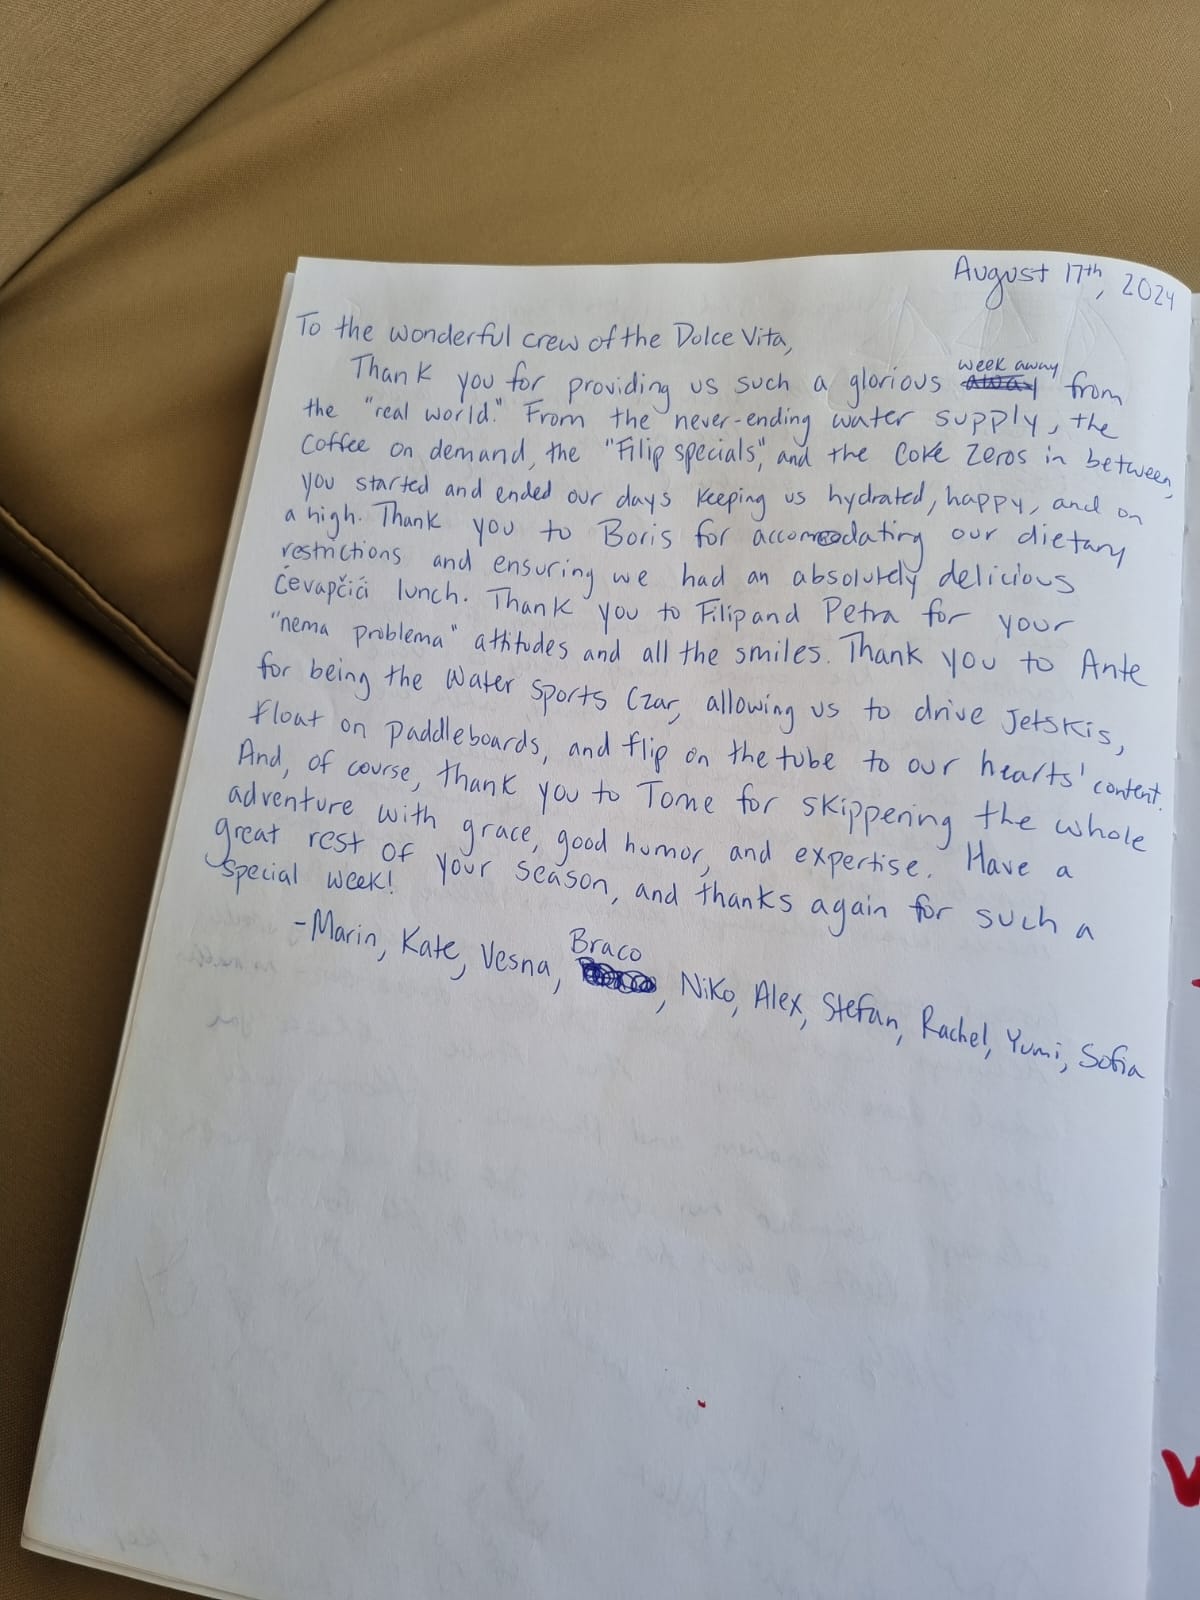 August 17th, 2024
To the wonderful crew of the Dolce Vita,
Thank you for providing us such a glorious week away from
the "real world." From the never-ending water supply, the
coffee on demand, the "Filip specials", and the Coke Zeros in between,
you started and ended our days keeping us hydrated, happy, and on
a high. Thank you to Boris for accommodating our dietary
restrictions and ensuring we had an absolutely delicious
ćevapčići lunch. Thank you to Filip and Petra for your
"nema problema" attitudes and all the smiles. Thank you to Ante
for being the Water Sports Czar, allowing us to drive Jetskis,
float on paddleboards, and flip on the tube to our hearts' content.
And, of course, thank you to Tome for skippering the whole
adventure with grace, good humor, and expertise. Have a
great rest of your season, and thanks again for such a
special week!
-Marin, Kate, Vesna, Braco, Niko, Alex, Stefan, Rachel, Yumi, Sofia